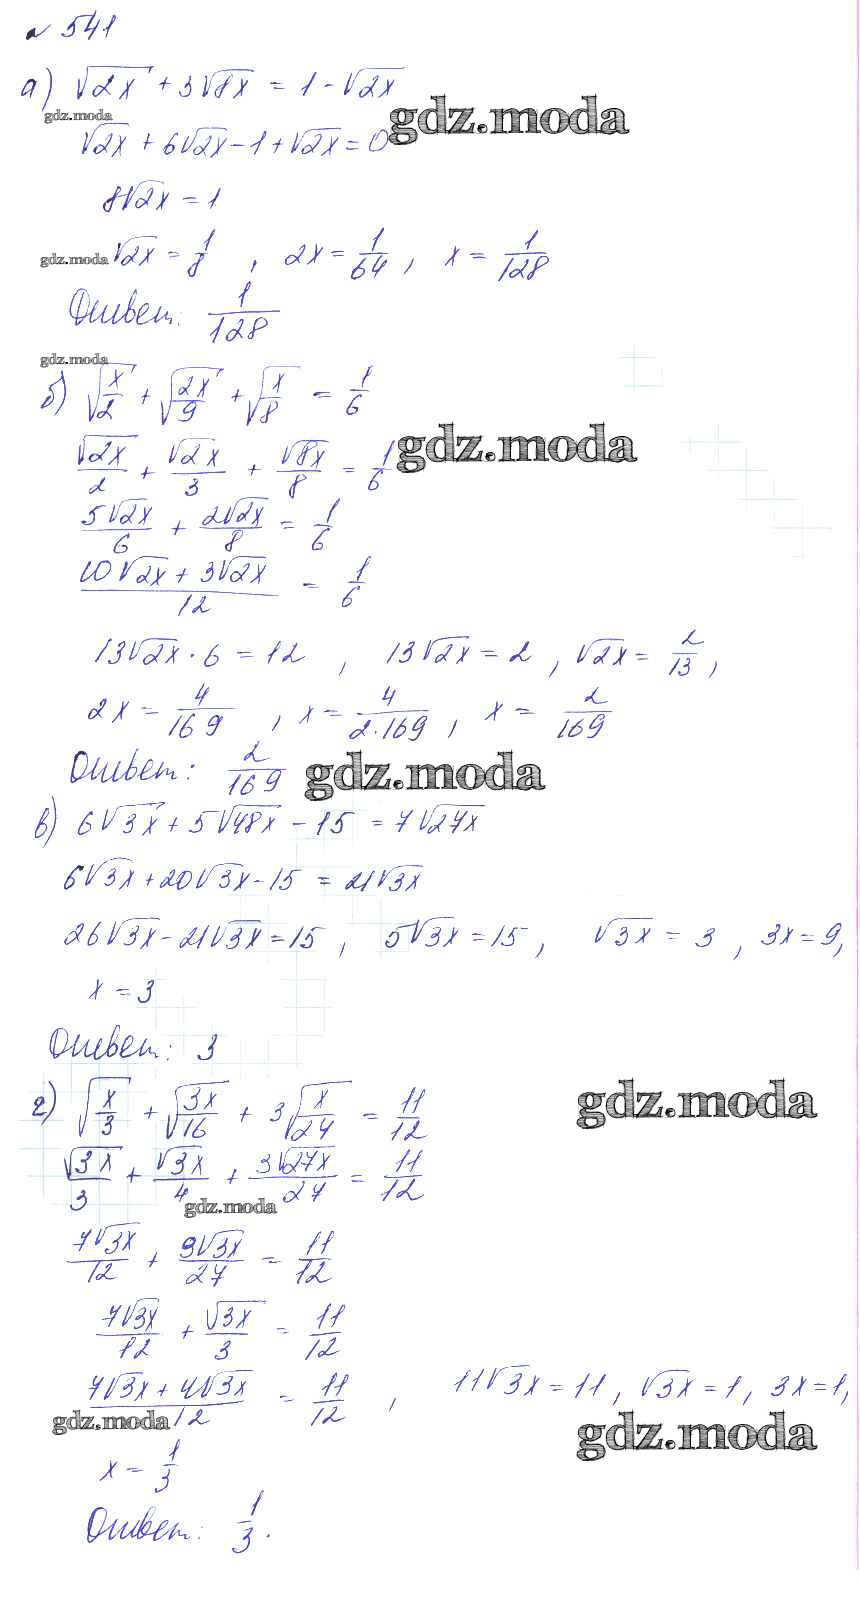 № 541
а) √2x + 3√8x = 1 - √2x
gdz.moda
gdz.moda
√2x + 6√2x - 1 + √2x = 0
8√2x = 1
gdz.moda
√2x = 1/8 , 2x = 1/64 , x = 1/128
Ответ: 1/128
gdz.moda
б) √x/2 + √2x/9 + √x/8 = 1/6
√2x/2 + √2x/3 + √8x/8 = 1/6
gdz.moda
5√2x/6 + 2√2x/8 = 1/6
10√2x + 3√2x/12 = 1/6
13√2x · 6 = 12 , 13√2x = 2 , √2x = 2/13 ,
2x = 4/169 , x = 4/2·169 , x = 2/169
Ответ: 2/169
gdz.moda
в) 6√3x + 5√48x - 15 = 7√27x
6√3x + 20√3x - 15 = 21√3x
26√3x - 21√3x = 15 , 5√3x = 15 , √3x = 3 , 3x = 9,
x = 3
Ответ: 3
г) √x/3 + √3x/16 + 3√x/27 = 11/12
gdz.moda
√3x/3 + √3x/4 + 3√27x/27 = 11/12
gdz.moda
7√3x/12 + 9√3x/27 = 11/12
7√3x/12 + √3x/3 = 11/12
7√3x + 4√3x/12 = 11/12 , 11√3x = 11 , √3x = 1, 3x = 1,
gdz.moda
gdz.moda
x = 1/3
Ответ: 1/3.